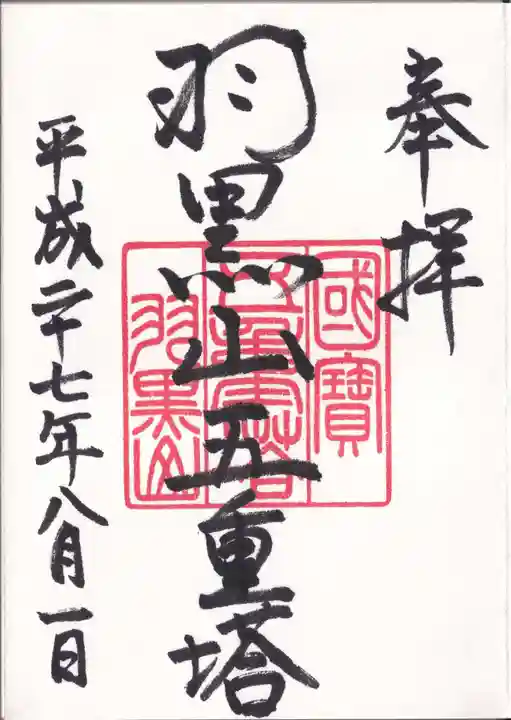 奉拝
羽黒山五重塔
國寶
五重塔
羽黒山
平成二十七年八月一日